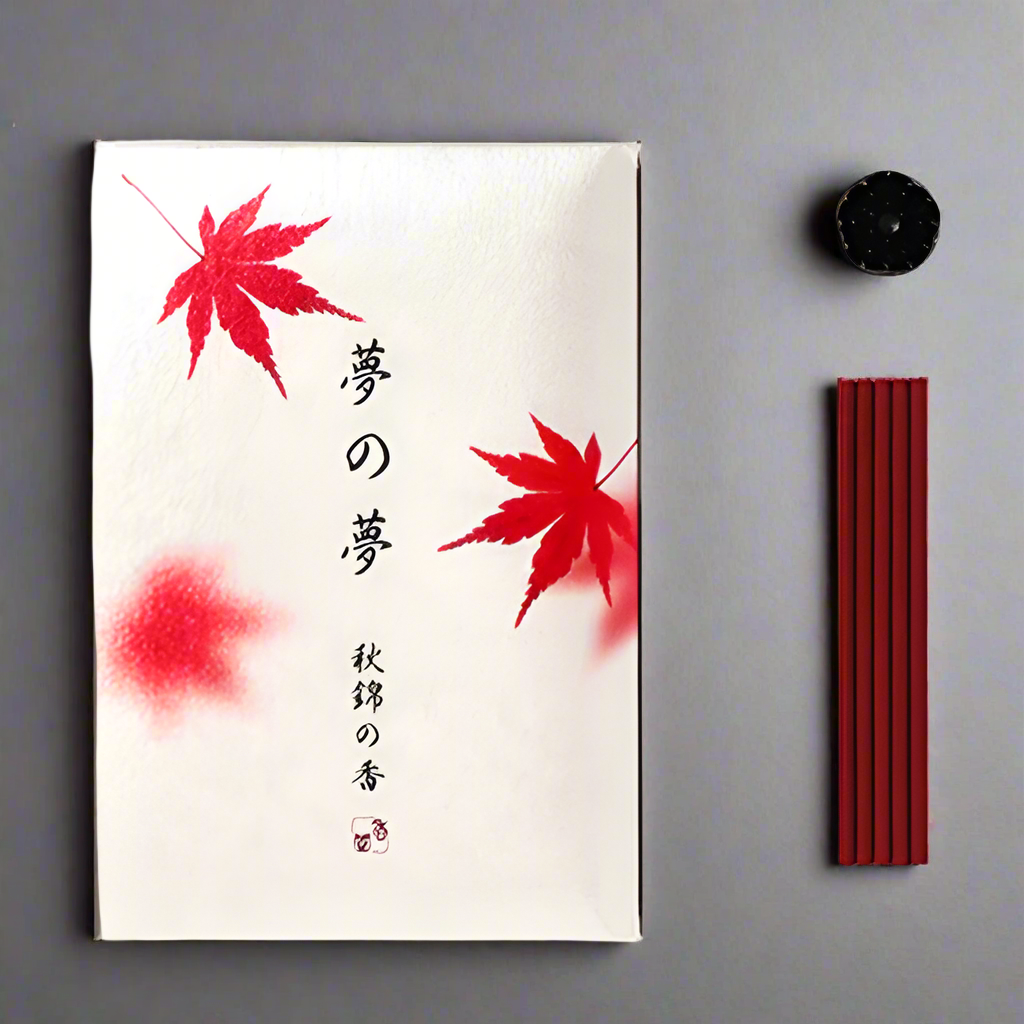 夢の夢
秋錦の香